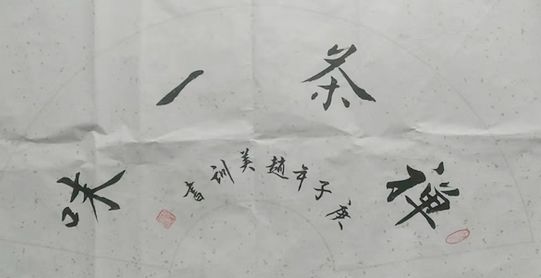 禅茶一味
庚子年趙美训書